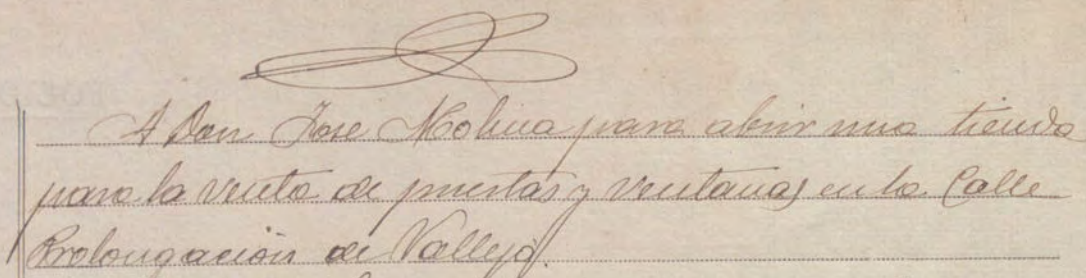 A Don Jose Molina para abrir una tienda
para la venta de puertas y ventanas en la Calle
Prolongación de Vallejo.